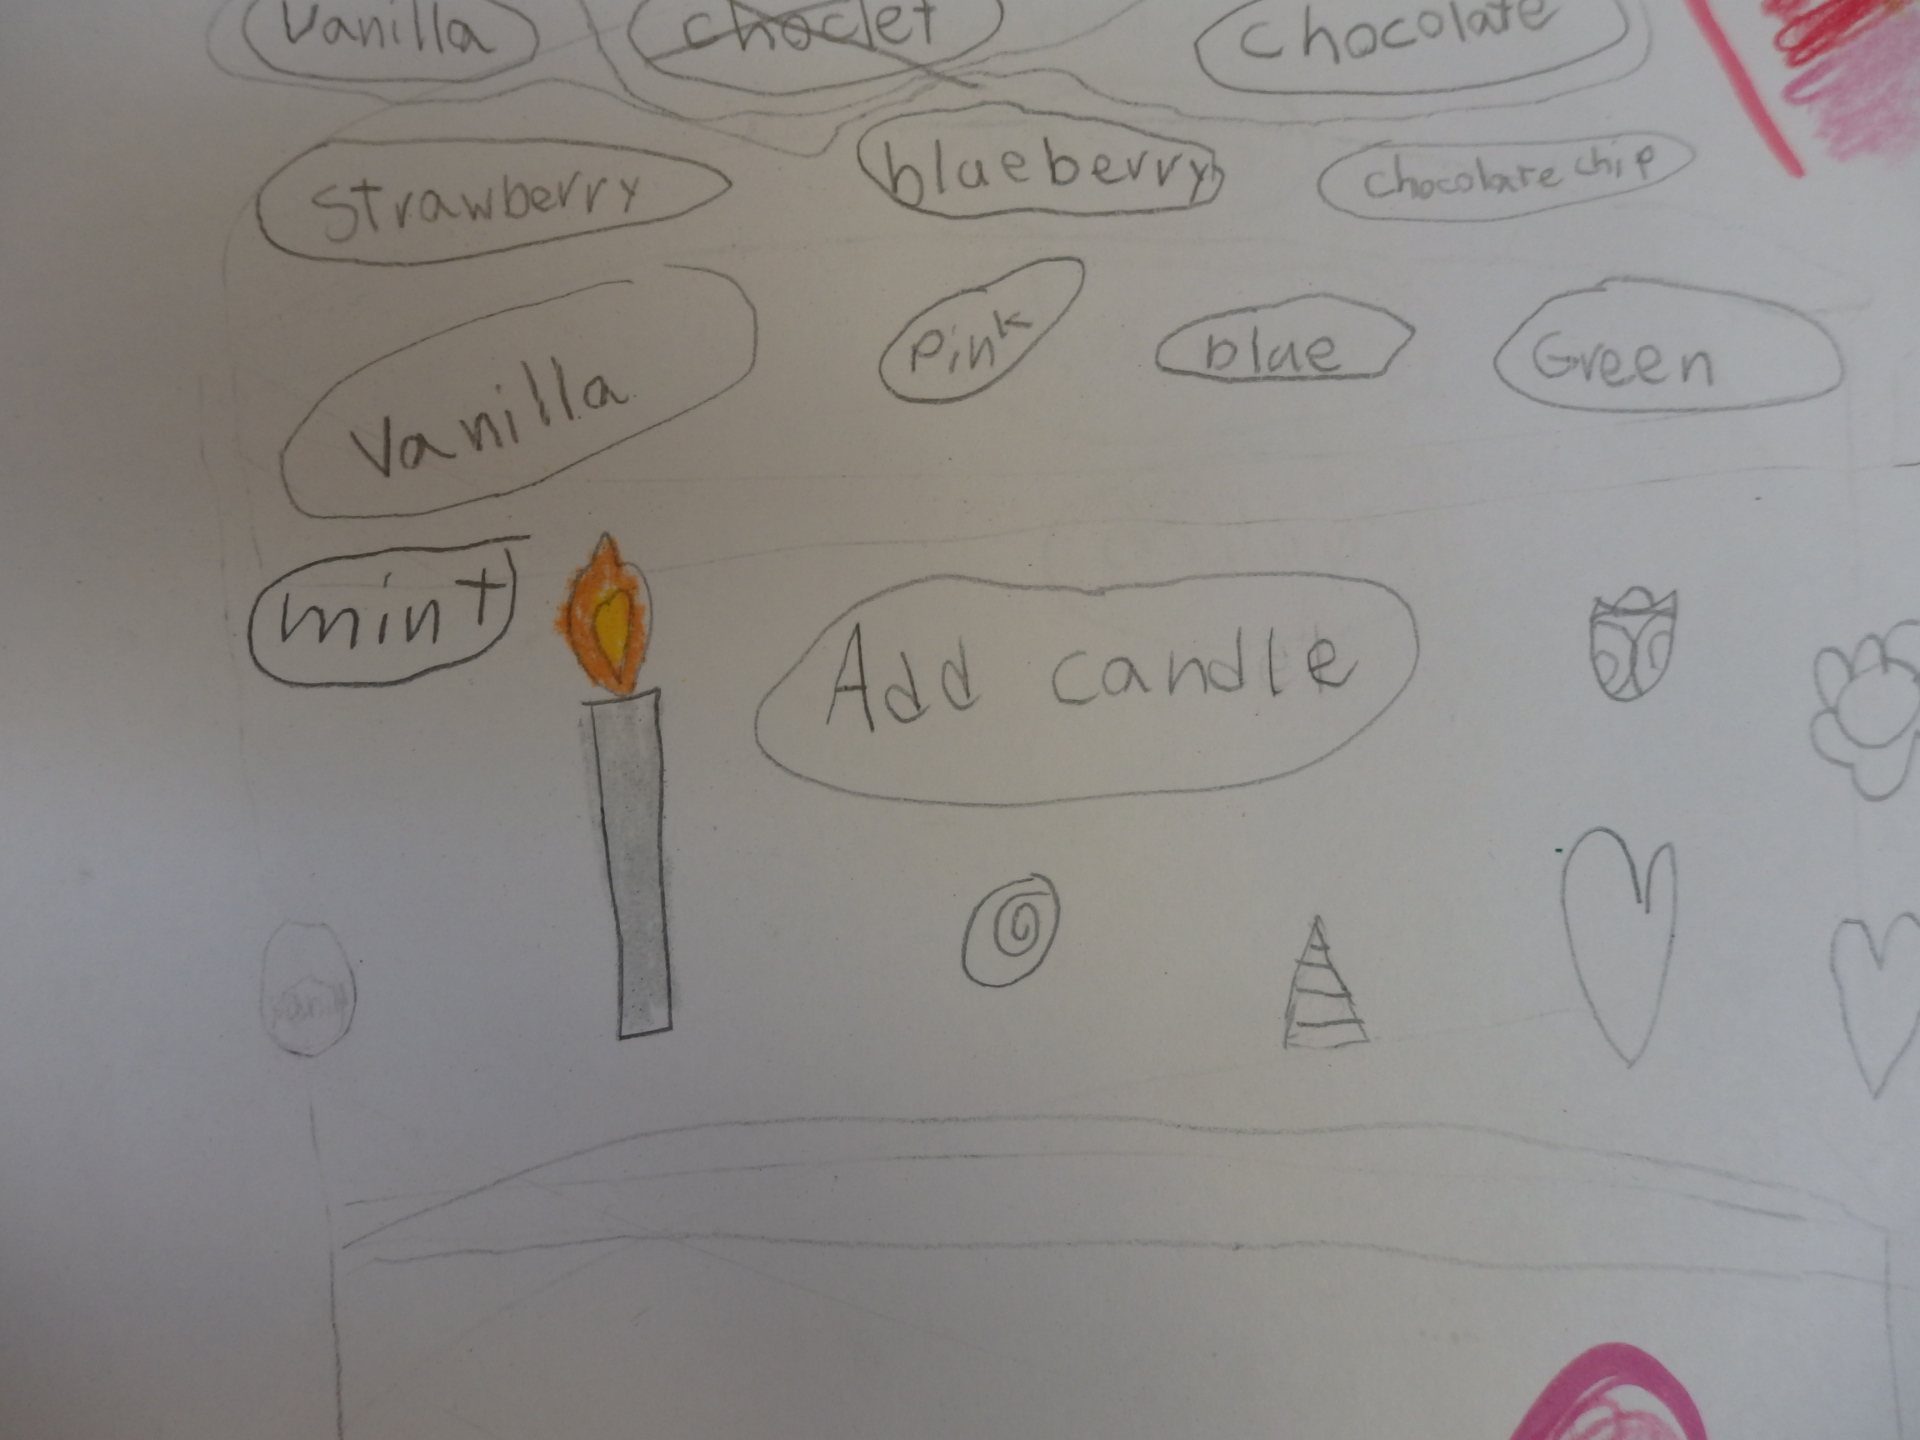 Vanilla choclet chocolate
strawberry blueberry chocolate chip
Vanilla Pink blue Green
mint Add candle